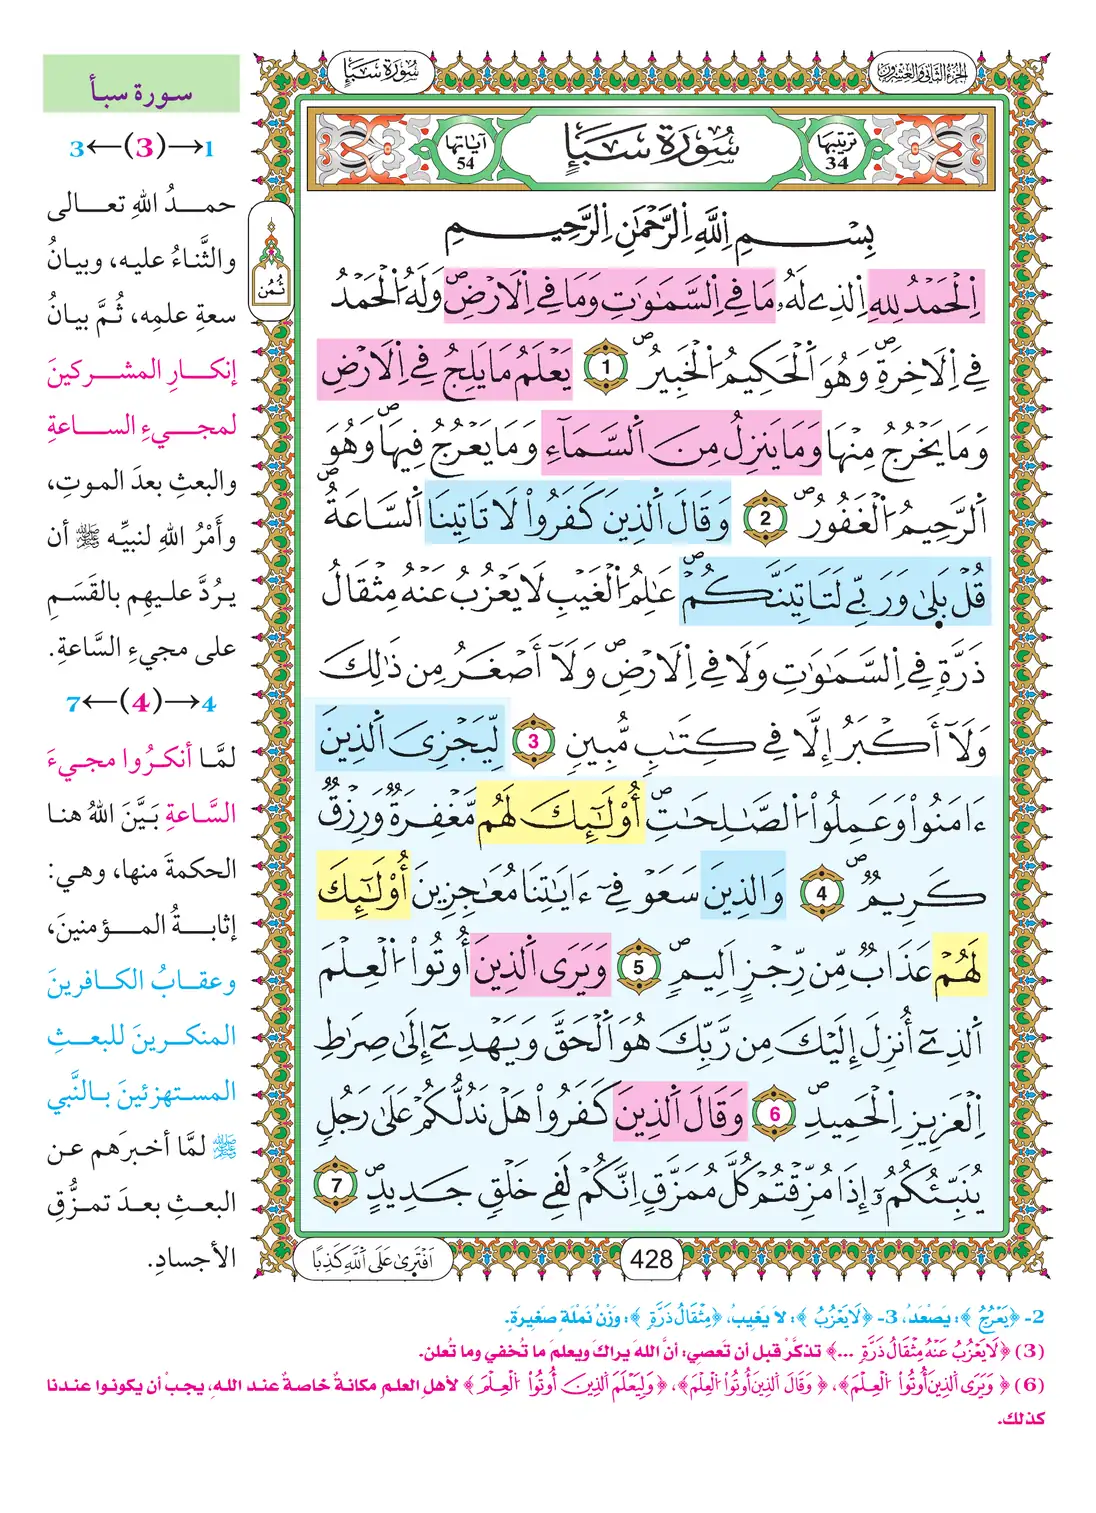 الجزء الثاني والعشرون
سُورَة سَبَإٍ
ترتيبها 34
سُورَة سَبَإٍ
آياتها 54
بِسْمِ اِ۬للَّهِ اِ۬لرَّحْمَٰنِ اِ۬لرَّحِيمِ
اِ۬لْحَمْدُ لِلهِ اِ۬لذِے لَهُۥ مَا فِے اِ۬لسَّمَٰوَٰتِ وَمَا فِے اِ۬لَارْضِۖ وَلَهُ اُ۬لْحَمْدُ
فِے اِ۬لَاخِرَةِۖ وَهُوَ اَ۬لْحَكِيمُ اُ۬لْخَبِيرُۖ 1 يَعْلَمُ مَا يَلِجُ فِے اِ۬لَارْضِ
وَمَا يَخْرُجُ مِنْهَا وَمَا يَنزِلُ مِنَ اَ۬لسَّمَآءِ وَمَا يَعْرُجُ فِيهَاۖ وَهُوَ
اَ۬لرَّحِيمُ اُ۬لْغَفُورُۖ 2 وَقَالَ اَ۬لذِينَ كَفَرُواْ لَا تَاتِينَا اَ۬لسَّاعَةُۖ
قُلْ بَلَىٰ وَرَبِّے لَتَاتِيَنَّكُمْۖ عَٰلِمُ اُ۬لْغَيْبِ لَا يَعْزُبُ عَنْهُ مِثْقَالُ
ذَرَّةٖ فِے اِ۬لسَّمَٰوَٰتِ وَلَا فِے اِ۬لَارْضِۖ وَلَآ أَصْغَرُ مِن ذَٰلِكَ
وَلَآ أَكْبَرُ إِلَّا فِے كِتَٰبٖ مُّبِينٖ 3 لِّيَجْزِىَ اَ۬لذِينَ
ءَامَنُواْ وَعَمِلُواْ اُ۬لصَّٰلِحَٰتِۖ أُوْلَٰٓئِكَ لَهُم مَّغْفِرَةٞ وَرِزْقٞ
كَرِيمٞۖ 4 وَالذِينَ سَعَوْ فِےٓ ءَايَٰتِنَا مُعَٰجِزِينَ أُوْلَٰٓئِكَ
لَهُمْ عَذَابٞ مِّن رِّجْزٍ اَلِيمٖۖ 5 وَيَرَى اَ۬لذِينَ أُوتُواْ اُ۬لْعِلْمَ
اَ۬لذِےٓ أُنزِلَ إِلَيْكَ مِن رَّبِّكَ هُوَ اَ۬لْحَقَّ وَيَهْدِےٓ إِلَىٰ صِرَٰطِ
اِ۬لْعَزِيزِ اِ۬لْحَمِيدِۖ 6 وَقَالَ اَ۬لذِينَ كَفَرُواْ هَلْ نَدُلُّكُمْ عَلَىٰ رَجُلٖ
يُنَبِّئُكُمُۥٓ إِذَا مُزِّقْتُمْ كُلَّ مُمَزَّقٍ اِنَّكُمْ لَفِے خَلْقٖ جَدِيدٖۖ 7
ثُمُن
428
اَفْتَرَىٰ عَلَى اَ۬للَّهِ كَذِبًا
سورة سبأ
1→(3)←3
حمدُ اللهِ تعالى
والثَّناءُ عليه، وبيانُ
سعةِ علمِه، ثُمَّ بيانُ
إنكارِ المشركينَ
لمجيءِ الساعةِ
والبعثِ بعدَ الموتِ،
وأَمْرُ اللهِ لنبيِّه ﷺ أن
يردَّ عليهِم بالقَسَمِ
على مجيءِ السَّاعةِ.
4→(4)←7
لمَّا أنكرُوا مجيءَ
السَّاعةِ بَيَّنَ اللهُ هنا
الحكمةَ منها، وهي:
إثابةُ المؤمنينَ،
وعقابُ الكافرينَ
المنكرينَ للبعثِ
المستهزئينَ بالنَّبي
ﷺ لمَّا أخبرَهم عن
البعثِ بعدَ تمزُّقِ
الأجسادِ.
2- ﴿يَعْرُجُ﴾: يَصْعَدُ، 3- ﴿لَا يَعْزُبُ﴾: لَا يَغِيبُ، ﴿مِثْقَالُ ذَرَّةٖ﴾: وَزْنُ نَمْلَةٍ صَغِيرَةٍ.
(3) ﴿لَا يَعْزُبُ عَنْهُ مِثْقَالُ ذَرَّةٖ ...﴾ تذكَّرْ قبل أن تَعصي: أنَّ اللهَ يراكَ ويعلمَ ما تُخفي وما تُعلن.
(6) ﴿وَيَرَى اَ۬لذِينَ أُوتُواْ اُ۬لْعِلْمَ﴾، ﴿وَقَالَ اَ۬لذِينَ أُوتُواْ اُ۬لْعِلْمَ﴾، ﴿وَلِيَعْلَمَ اَ۬لذِينَ أُوتُواْ اُ۬لْعِلْمَ﴾ لأهلِ العلمِ مكانةٌ خاصةٌ عندَ اللهِ، يجبُ أن يكونوا عندنا
كذلك.